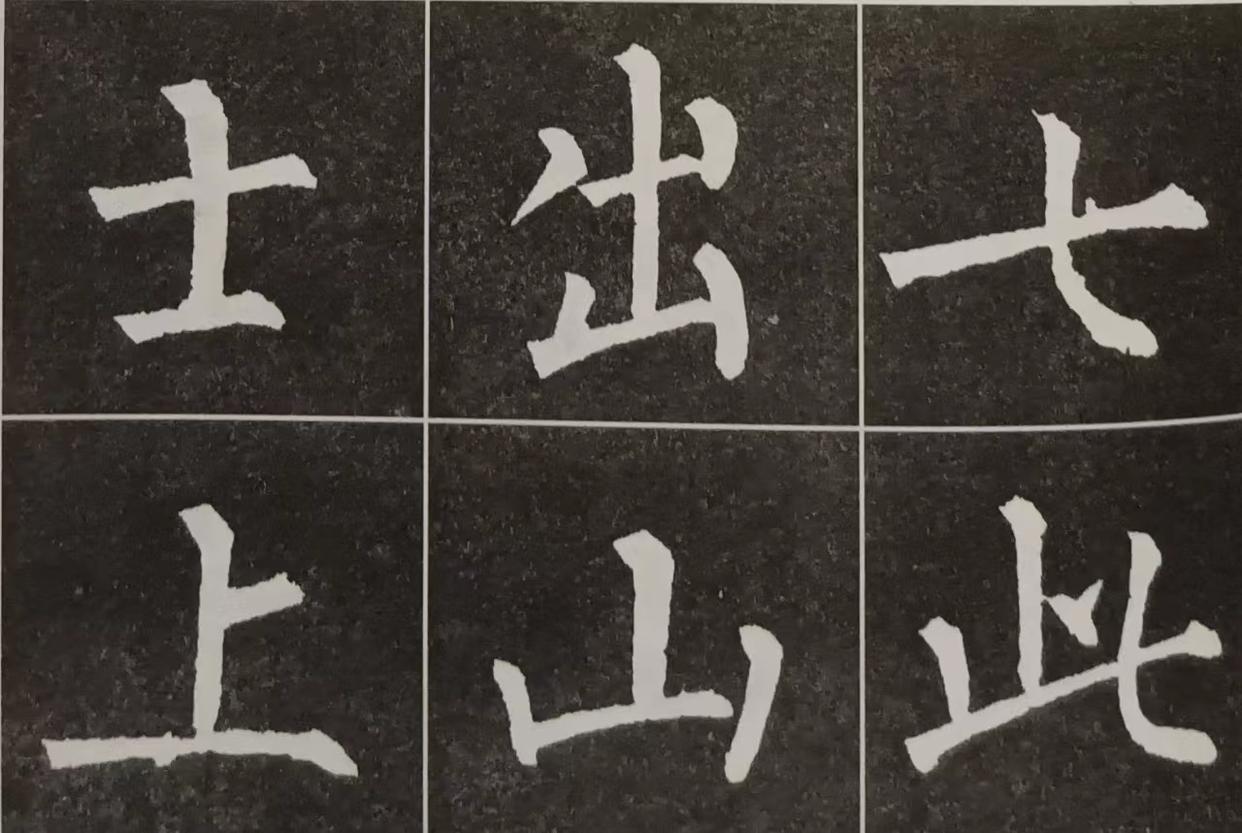 士出七
上山此